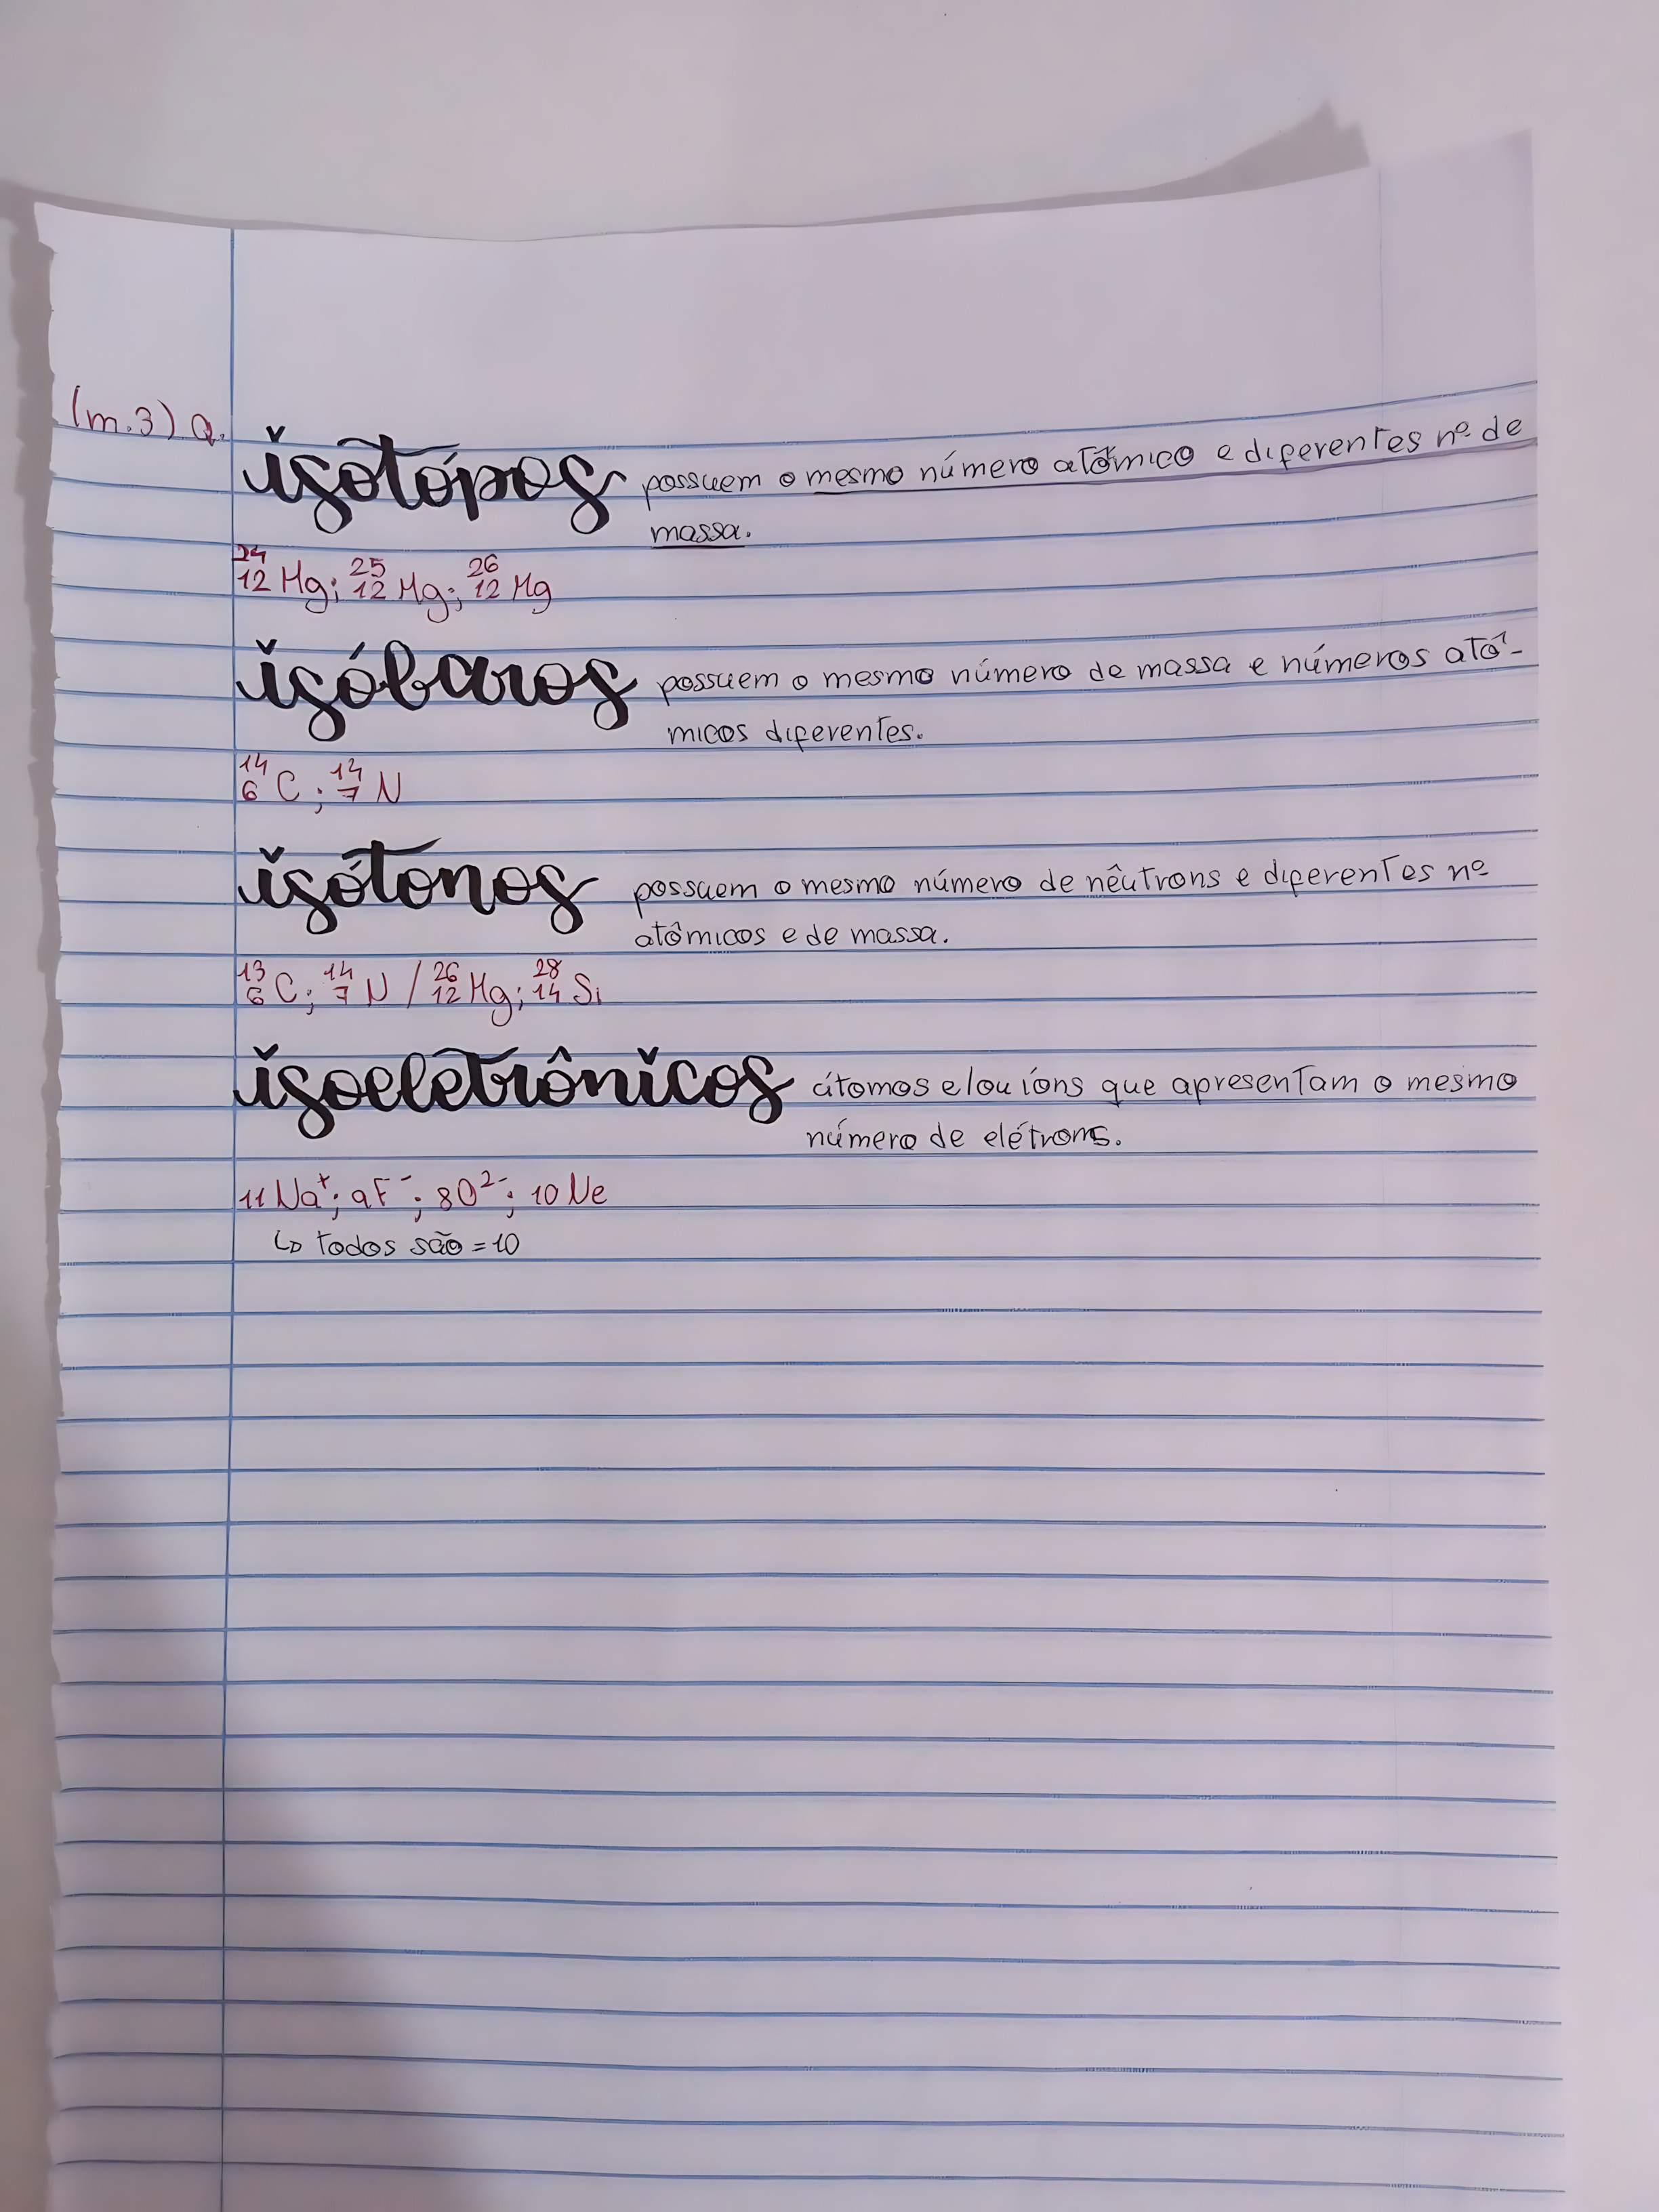 (m.3) Q.
isótópos possuem o mesmo número atômico e diferentes nº de
massa.
²⁴₁₂Mg; ²⁵₁₂Mg; ²⁶₁₂Mg
isóbaros possuem o mesmo número de massa e números atô-
micos diferentes.
¹⁴₆C; ¹⁴₇N
isótonos possuem o mesmo número de nêutrons e diferentes nº
atômicos e de massa.
¹³₆C; ¹⁴₇N / ²⁶₁₂Mg; ²⁸₁₄Si
isoeletrônicos átomos e/ou íons que apresentam o mesmo
número de elétrons.
₁₁Na⁺; ₉F⁻; ₈O²⁻; ₁₀Ne
↳ todos são = 10